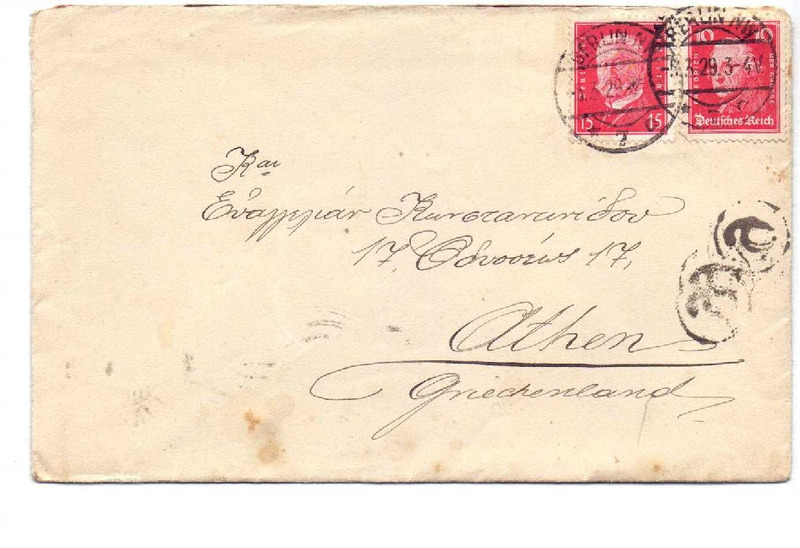 BERLIN N
15 15
BERLIN NW
3.29.3-4V.
10 10
Deutsches Reich
Καν
Εὐαγγελίαν Κωνσταντινίδου
17, Ὀδυσσέως 17,
Athen
Griechenland